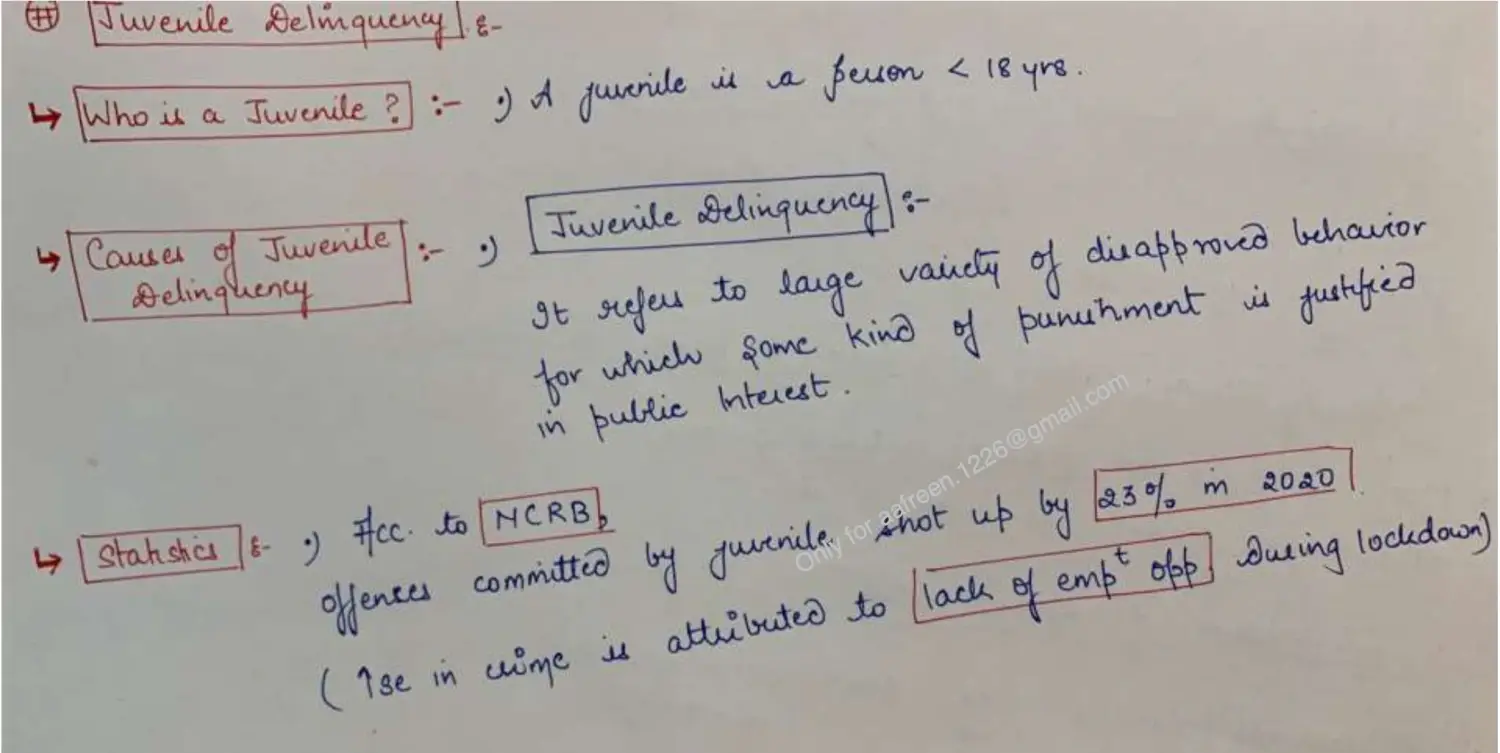 # Juvenile Delinquency :-
↳ Who is a Juvenile ? :- •) A juvenile is a person < 18 yrs.
↳ Causes of Juvenile
Delinquency :- •) Juvenile Delinquency :-
It refers to large variety of disapproved behavior
for which some kind of punishment is justified
in public Interest.
↳ Statistics :- •) Acc. to NCRB,
offences committed by juvenile shot up by 23% in 2020
(↑se in crime is attributed to lack of empt opp during lockdown)
Only for aafreen.1226@gmail.com